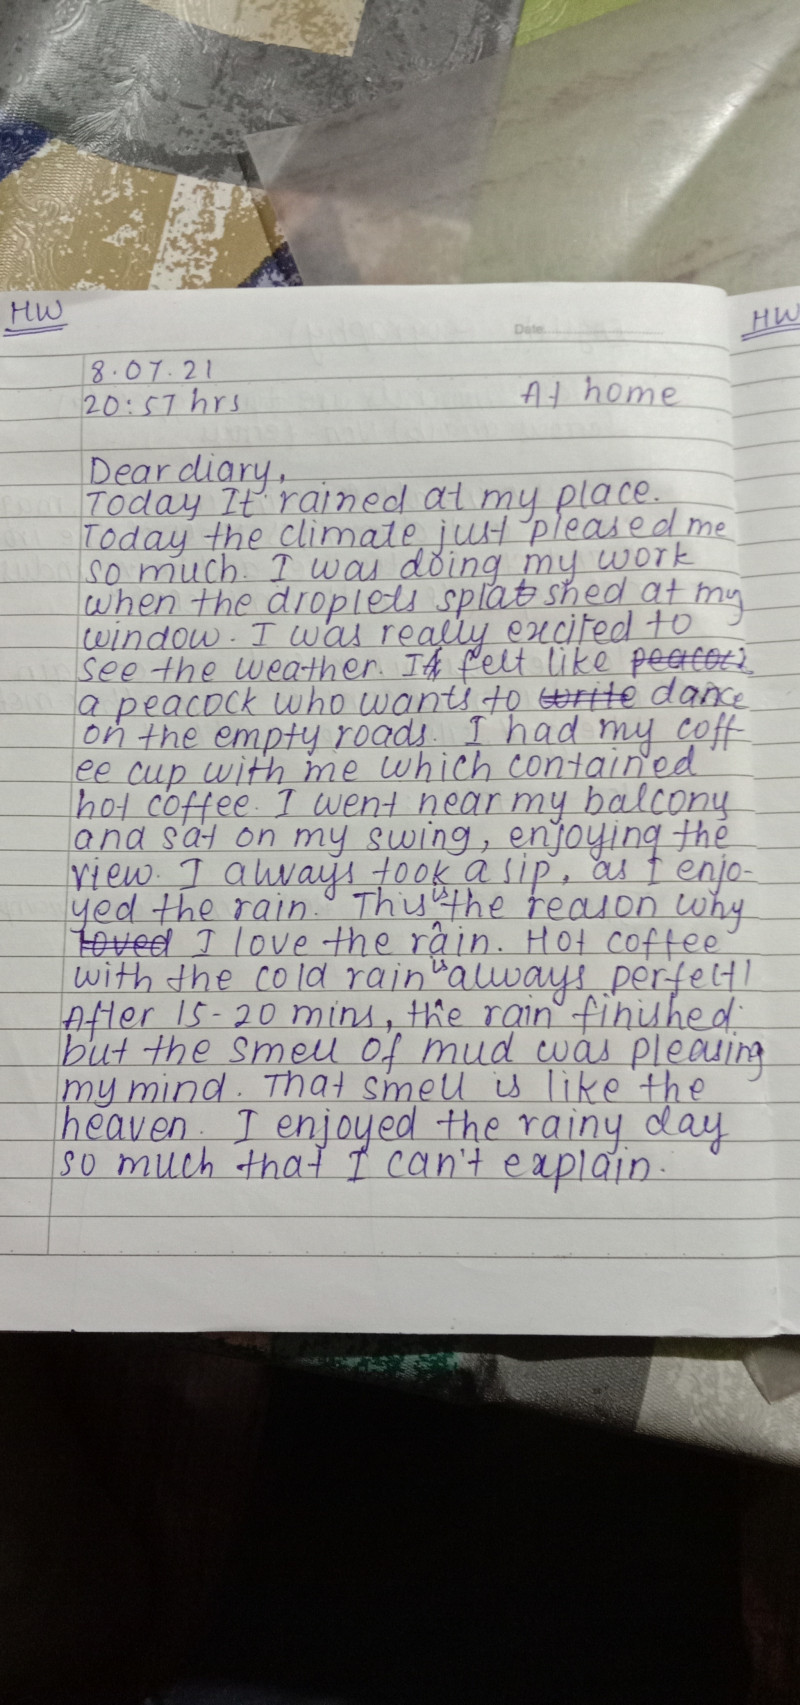 HW
HW
Date
8.07.21
20:57 hrs
At home
Dear diary,
Today It rained at my place.
Today the climate just pleased me
so much. I was doing my work
when the droplets splashed at my
window. I was really excited to
see the weather. I felt like peacock
a peacock who wants to write dance
on the empty roads. I had my coff-
ee cup with me which contained
hot coffee. I went near my balcony
and sat on my swing, enjoying the
view. I always took a sip, as I enjo-
yed the rain. This is the reason why
loved I love the rain. Hot coffee
with the cold rain is always perfect!
After 15-20 mins, the rain finished
but the smell of mud was pleasing
my mind. That smell is like the
heaven. I enjoyed the rainy day
so much that I can't explain.